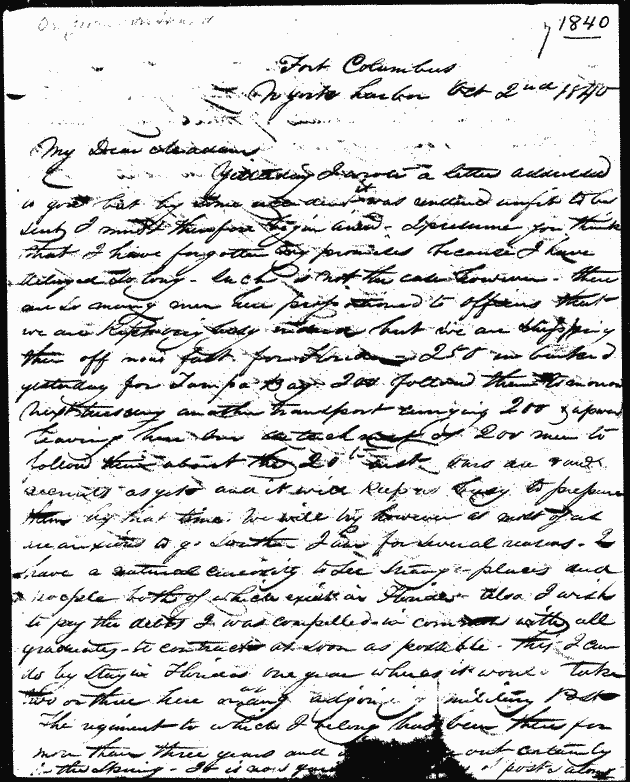 1840
Fort Columbus
N york harbor Oct 2nd 1840
My Dear Madam
Yesterday I wrote a letter addressed
to you but by some accident it was rendered unfit to be
sent I must therefore begin anew - I presume you think
that I have forgotten my promises because I have
delayed so long - Such is not the case however - there
are so many men here proportioned to officers that
we are kept very busy indeed but we are shipping
them off now fast for Florida - 250 embarked
yesterday for Tampa Bay 200 follow them tomorrow
Next tuesday another transport carrying 200 & upward
leaving here our detachment of 200 men to
follow them about the 20th inst. ours are
recruits as yet and it will keep us busy to prepare
them by that time. We will try however as most of us
are anxious to go South I am for several reasons - I
have a natural curiosity to see strange places and
people both of which exist in Florida - Also I wish
to pay the debts I was compelled in common with all
graduates to contract as soon as possible - this I can
do by staying in Florida one year whereas it would take
two or three here or at any adjoining military Post
The regiment to which I belong has been there for
more than three years and out certainly
in the Spring - It is now posts along